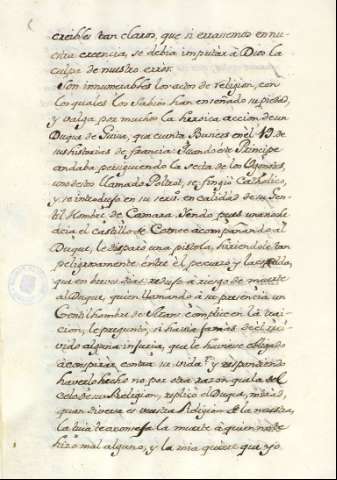 creibles tan claros, que si errasemos en nu
estra creencia, se debia imputar à Dios la
culpa de nuestro error.
Son innumerables los actos de religion, con
los quales los Sabios han enseñado su piedad,
y valga por muchos la heroica accion de un
Duque de Guisa, que cuenta en el 19 de
sus historias de francia. Quando este Principe
andaba persiguiendo la secta de los
uno de estos llamado Poltrot, se fingiò Catholico,
y se introduxo en su en calidad de su Gen
til Hombre de Camara. Yendo pues una noche
acia el castillo de Cornee acompañando al
Duque, le disparò una pistola, hiriendole tan
peligrosamente entre el pecuezo y la espalda,
que en breves dias reduxo a riesgo de muerte
al Duque, quien llamando à su presencia un
Gentil hombre de complice en la trai
cion, le preguntò, si havia jamàs de el reci
vido alguna injuria, que le huviese obligado
à conspirar contra su vida? y respondiendo
haverlo hecho no por otra razon que la del
celo de su Religion, replicò el Duque, mirad,
quan diversa es vuestra Religion de la nuestra,
la tuia te aconseja la muerte à quien no te
hizo mal alguno, y la mia quiere que yo